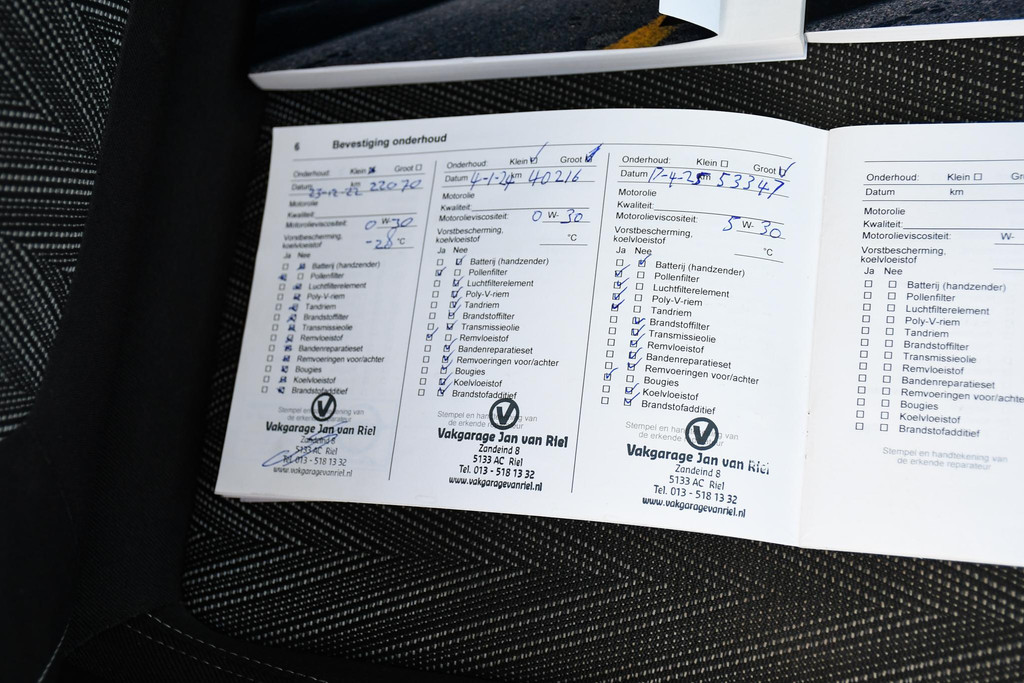 6 Bevestiging onderhoud
Onderhoud: Klein Groot
Datum 23-12-22 km 22070
Motorolie
Kwaliteit:
Motorolieviscositeit: 0 W- 30
Vorstbescherming,
koelvloeistof -28 °C
Ja Nee
Batterij (handzender)
Pollenfilter
Luchtfilterelement
Poly-V-riem
Tandriem
Brandstoffilter
Transmissieolie
Remvloeistof
Bandenreparatieset
Remvoeringen voor/achter
Bougies
Koelvloeistof
Brandstofadditief
Stempel en handtekening van
de erkende reparateur
Vakgarage Jan van Riel
Zandeind 8
5133 AC Riel
Tel. 013 - 518 13 32
www.vakgaragevanriel.nl
Onderhoud: Klein Groot
Datum 4-1-24 km 40216
Motorolie
Kwaliteit:
Motorolieviscositeit: 0 W- 30
Vorstbescherming,
koelvloeistof °C
Ja Nee
Batterij (handzender)
Pollenfilter
Luchtfilterelement
Poly-V-riem
Tandriem
Brandstoffilter
Transmissieolie
Remvloeistof
Bandenreparatieset
Remvoeringen voor/achter
Bougies
Koelvloeistof
Brandstofadditief
Stempel en handtekening van
de erkende
Vakgarage Jan van Riel
Zandeind 8
5133 AC Riel
Tel. 013 - 518 13 32
www.vakgaragevanriel.nl
Onderhoud: Klein Groot
Datum 17-4-25 km 53347
Motorolie
Kwaliteit:
Motorolieviscositeit: 5 W- 30
Vorstbescherming,
koelvloeistof °C
Ja Nee
Batterij (handzender)
Pollenfilter
Luchtfilterelement
Poly-V-riem
Tandriem
Brandstoffilter
Transmissieolie
Remvloeistof
Bandenreparatieset
Remvoeringen voor/achter
Bougies
Koelvloeistof
Brandstofadditief
Stempel en van
de erkende
Vakgarage Jan van Riel
Zandeind 8
5133 AC Riel
Tel. 013 - 518 13 32
www.vakgaragevanriel.nl
Onderhoud: Klein Gr
Datum km
Motorolie
Kwaliteit:
Motorolieviscositeit: W-
Vorstbescherming,
koelvloeistof
Ja Nee
Batterij (handzender)
Pollenfilter
Luchtfilterelement
Poly-V-riem
Tandriem
Brandstoffilter
Transmissieolie
Remvloeistof
Bandenreparatieset
Remvoeringen voor/achte
Bougies
Koelvloeistof
Brandstofadditief
Stempel en handtekening van
de erkende reparateur